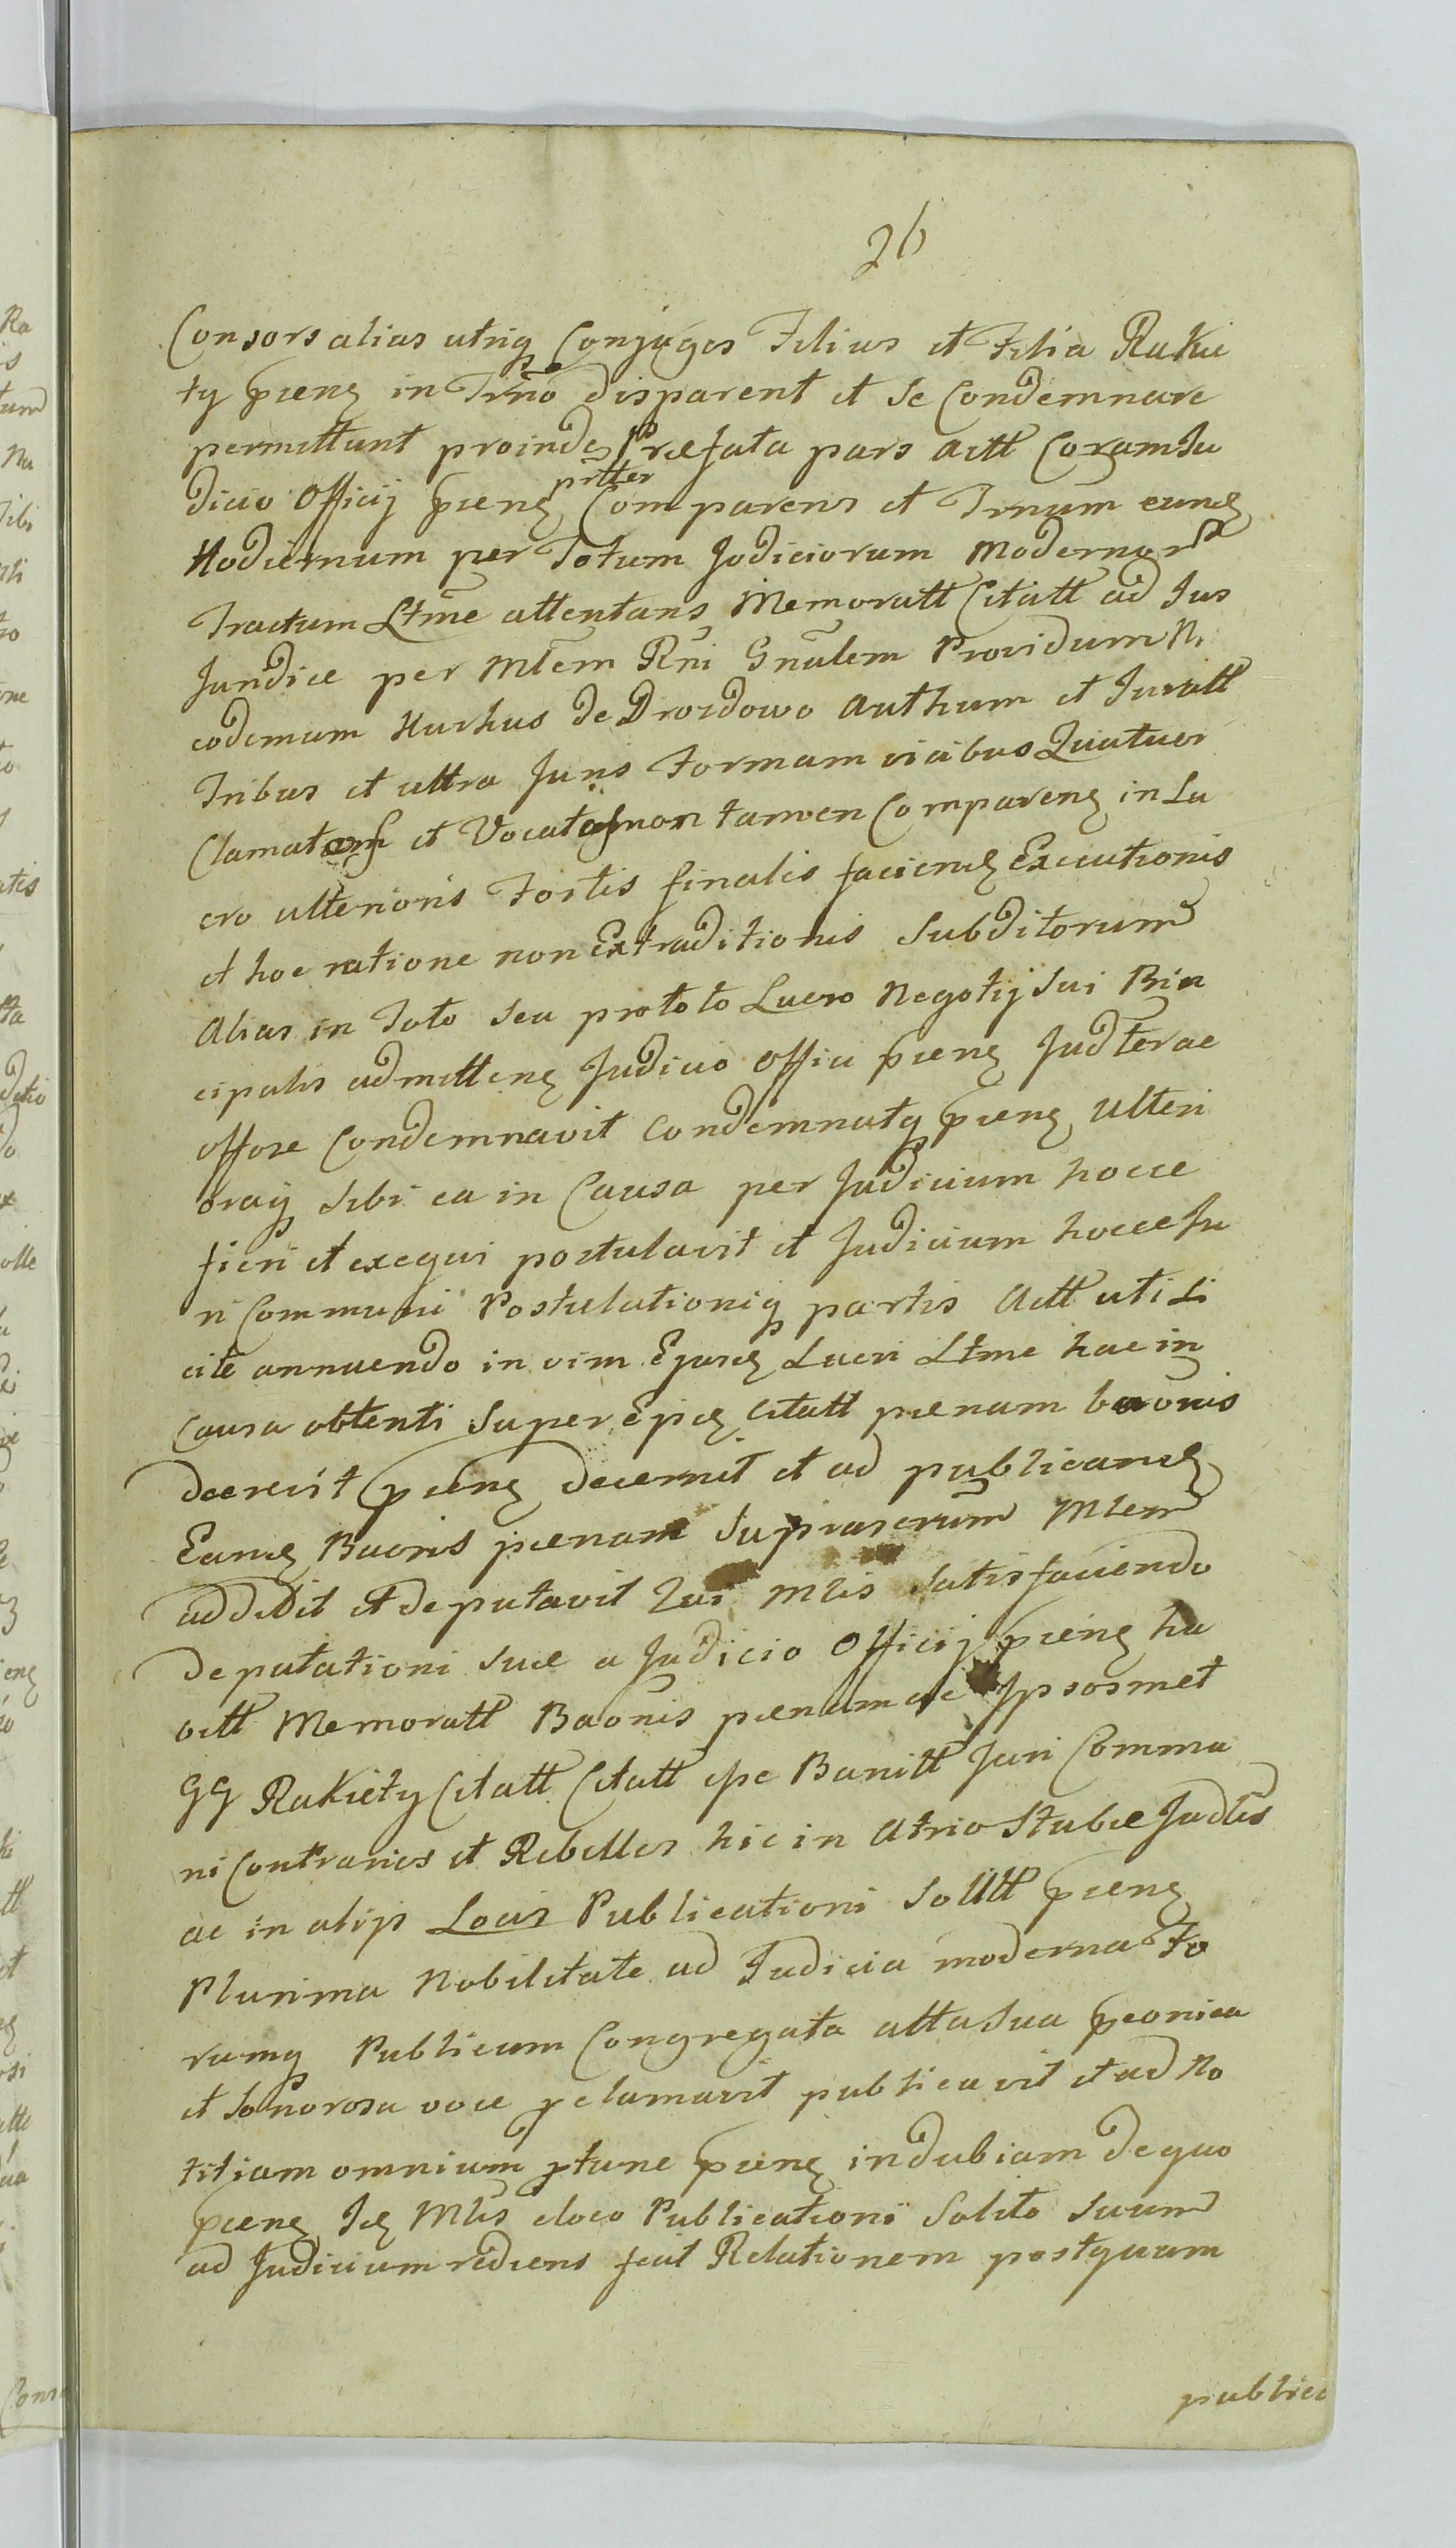 26
Consors alias utriq Conjuges Filius et Filia Rakie
ty pięnę in Trno disparent et se Condemnare
permittunt proinde Præfata pars actt Coram Ju
dicio Officij præns pritter Comparens et Trnum eund
Hodiernum per Totum Judiciorum Modernor
Tractum Ltme attentans Memoratt Citatt ad Jus
Juridice per Mlem Rni Gnalem Providum N.
codemum Huchus de Drozdowo Authum et Juratt
Tribus et ultra Juris Formam vicibus Quatuor
Clamatos et Vocatos non tamen Comparens in Lu
cro ulterioris Fortis finalis faciend Executionis
et hoc ratione non Extraditionis Subditorum
Alias in Toto seu pro toto Lucro Negotij sui Prin
cipalis admittens Judicio Offici præns Judter ac
offore Condemnavit Condemnatq præns Ulteri
oraq sibi ea in Causa per Judicium hocce
fieri et exequi postulavit et Judicium hocce Ju
ri Communi Postulationiq partis Actt uti Li
cite annuendo in vim Ejusd Lucri Ltme hac in
Causa obtenti super Epid Citatt pænam baonis
decrevit præns decernit et ad publicand
Eand Baonis pænam supraserum Mlem
addidit et deputavit Qui Mlis satisfaciendo
deputationi suæ a Judicio Officij præns ha
bitt Memoratt Baonis pænam ac Ipsosmet
GG Rakiety Citatt Citatt ipe Banitt Juri Commu
ni Contrarios et Rebelles hic in Atrio Stubæ Judlis
ac in alijs Locis Publicationi solitt præns
Plurima Nobilitate ad Judicia moderna Fo
rumq Publicum Congregata alta sua præonica
et sonorosa voce pclamavit publicavit et ad No
titiam omnium ptunc præns indubiam de quo
præns Id Mlis eloco Publicationi Solito suum
ad Judicium rediens fecit Relationem postquam
publica